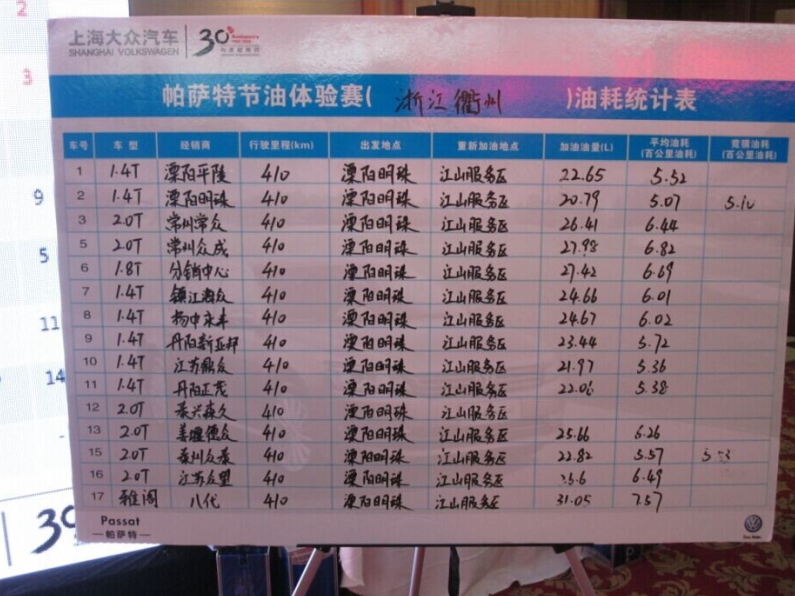 上海大众汽车 30
SHANGHAI VOLKSWAGEN
帕萨特节油体验赛( 浙江衢州 )油耗统计表
车号 车 型 经销商 行驶里程(km) 出发地点 重新加油地点 加油油量(L) 平均油耗(百公里油耗) 竞猜油耗(百公里油耗)
1 1.4T 溧阳平陵 410 溧阳明珠 江山服务区 22.65 5.52
2 1.4T 溧阳明珠 410 溧阳明珠 江山服务区 20.79 5.07 5.10
3 2.0T 常州常众 410 溧阳明珠 江山服务区 26.41 6.44
5 2.0T 常州众成 410 溧阳明珠 江山服务区 27.98 6.82
6 1.8T 分销中心 410 溧阳明珠 江山服务区 27.42 6.69
7 1.4T 镇江 410 溧阳明珠 江山服务区 24.66 6.01
8 1.4T 扬中 410 溧阳明珠 江山服务区 24.67 6.02
9 1.4T 丹阳新亚邦 410 溧阳明珠 江山服务区 23.44 5.72
10 1.4T 江苏鼎众 410 溧阳明珠 江山服务区 21.97 5.36
11 1.4T 丹阳正茂 410 溧阳明珠 江山服务区 22.06 5.38
12 2.0T 泰兴森久 410 溧阳明珠 江山服务区
13 2.0T 姜堰德众 410 溧阳明珠 江山服务区 25.66 6.26
15 2.0T 泰州众泰 410 溧阳明珠 江山服务区 22.82 5.57
16 2.0T 江苏众塑 410 溧阳明珠 江山服务区 6.49
17 雅阁 八代 410 溧阳明珠 江山服务区 31.05 7.57
Passat
帕萨特
2
3
9
5
11
14
30